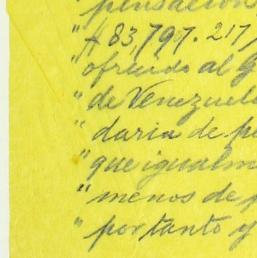 pensacion
" $ 83,797.217,
" ofrecido al G
" de Venezuel
" daria de p
" que igualm
" menos de p
" por tanto y